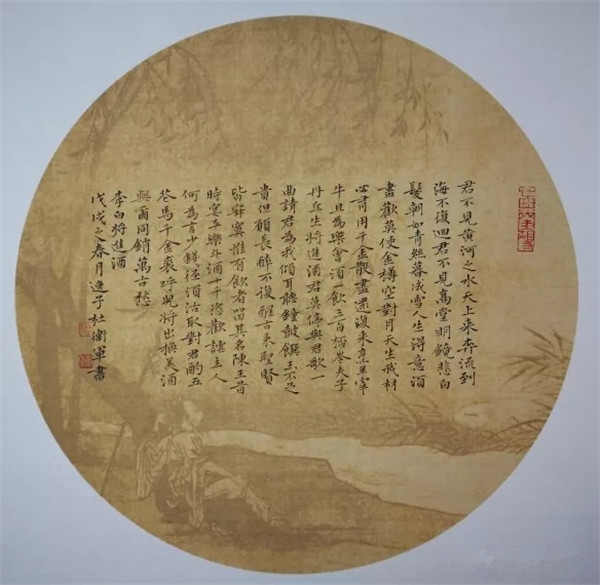 君不見黃河之水天上来奔流到
海不復迴君不見高堂明鏡悲白
髮朝如青絲暮成雪人生得意須
盡歡莫使金樽空對月天生我材
必有用千金散盡還復来烹羊宰
牛且為樂會須一飲三百杯岑夫子
丹丘生將進酒君莫停與君歌一
曲請君為我傾耳聽鐘鼓饌玉不足
貴但願長醉不復醒古来聖賢
皆寂寞惟有飲者留其名陳王昔
時宴平樂斗酒十千恣歡謔主人
何為言少錢徑須沽取對君酌五
花馬千金裘呼兒將出換美酒
與爾同銷萬古愁
李白將進酒
戊戌之春月逸子杜衛軍書